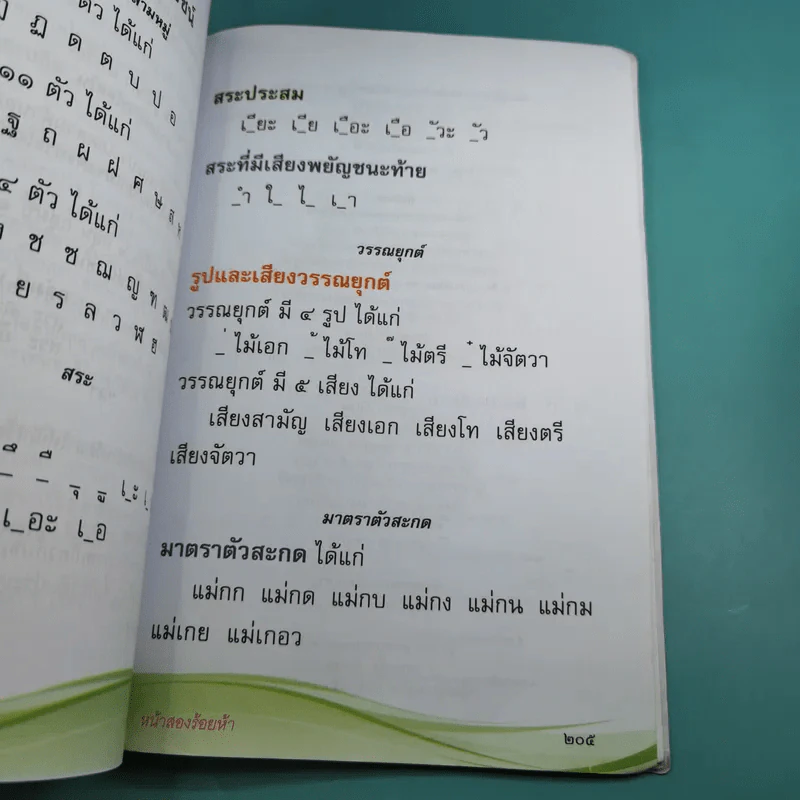 ตัว ได้แก่
ฏ ด ต บ ป อ
๑๑ ตัว ได้แก่
ฐ ถ ผ ฝ ศ ษ ส ห
๔ ตัว ได้แก่
ช ซ ฌ ญ ฑ
ย ร ล ว ฬ ฮ
สระ
เ_อะ เ_อ
สระประสม
เ_ียะ เ_ีย เ_ือะ เ_ือ _ัวะ _ัว
สระที่มีเสียงพยัญชนะท้าย
_ำ ใ_ ไ_ เ_า
วรรณยุกต์
รูปและเสียงวรรณยุกต์
วรรณยุกต์ มี ๔ รูป ได้แก่
_่ ไม้เอก _้ ไม้โท _๊ ไม้ตรี _๋ ไม้จัตวา
วรรณยุกต์ มี ๕ เสียง ได้แก่
เสียงสามัญ เสียงเอก เสียงโท เสียงตรี
เสียงจัตวา
มาตราตัวสะกด
มาตราตัวสะกด ได้แก่
แม่กก แม่กด แม่กบ แม่กง แม่กน แม่กม
แม่เกย แม่เกอว
หน้าสองร้อยห้า
๒๐๕